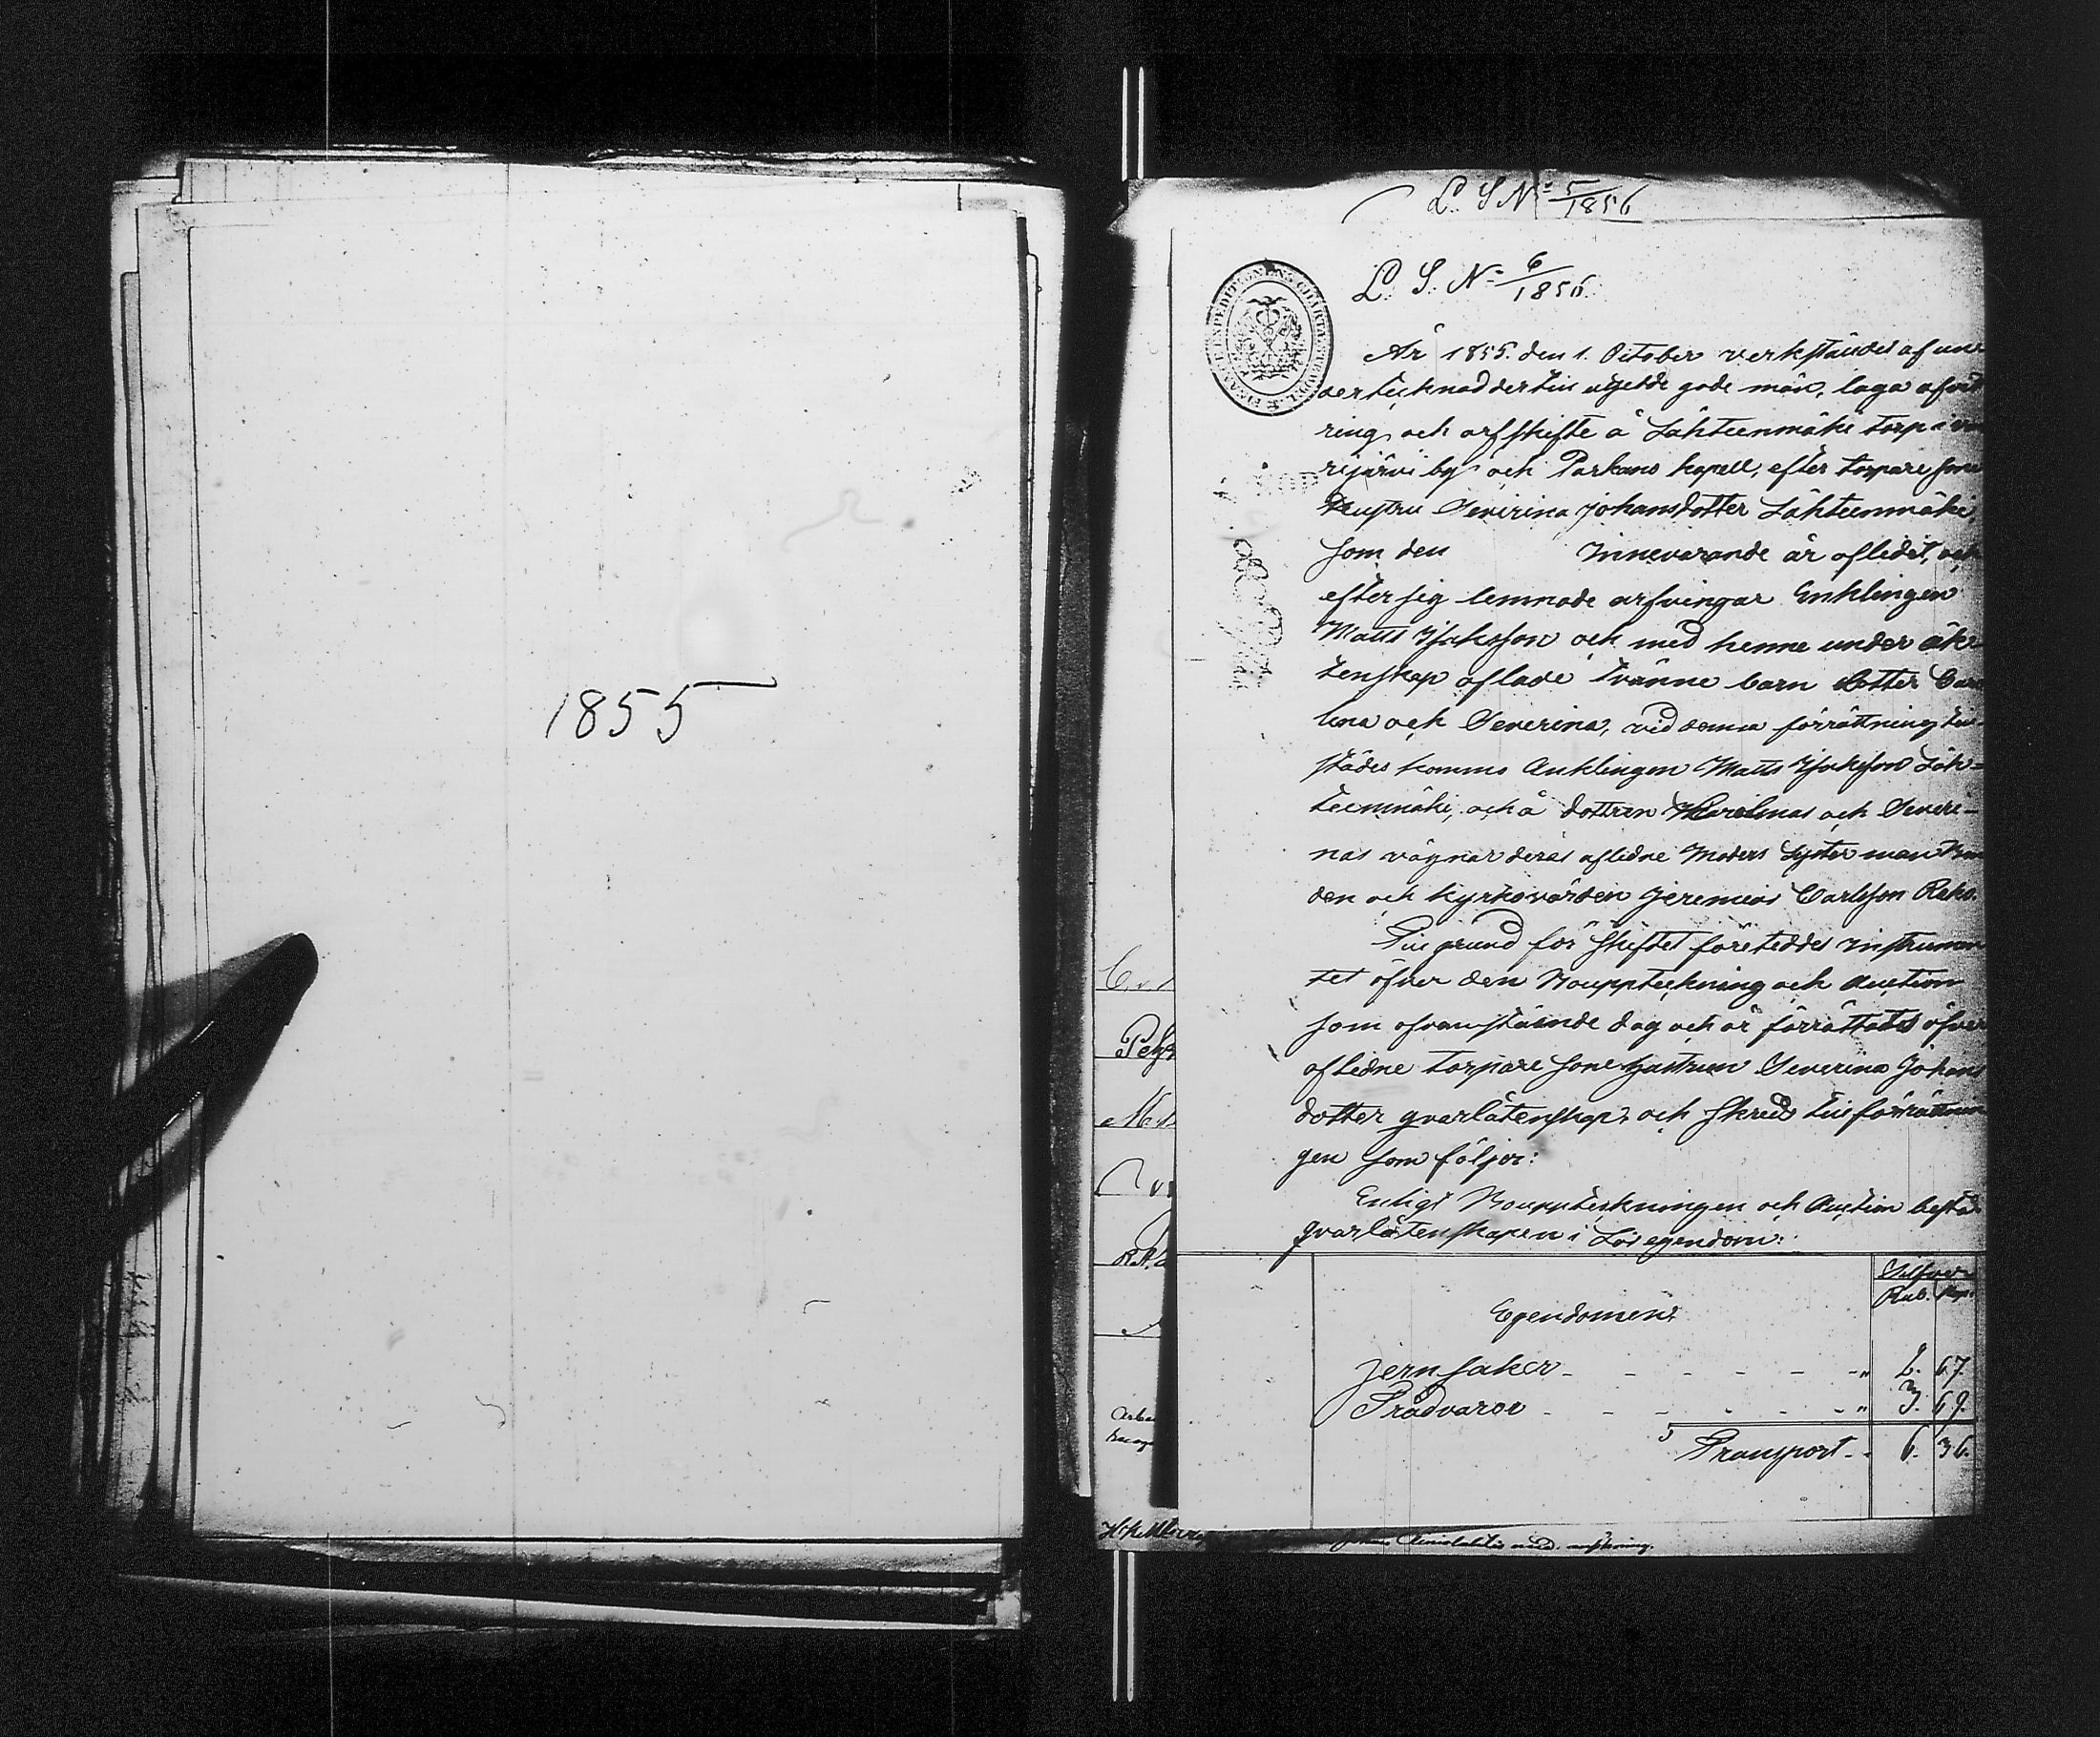 1855
L. S. N:º 5/1856
L. S. N:º 6/1856.
År 1855. den 1. October verkstäldes af un-
dertecknad dertill utsedde gode män, laga afvitt
ring och arfskifte å Lähteenmäki torp i
rejärvi by och Parkano kapell, efter torpare sone
Hustru Sevirina Johansdotter Lähteenmäki,
som den innevarande år aflidit, och
efter sig lemnade arfvingar Enklingen
Matts Isaksson och med henne under äk-
tenskap aflade tvänne barn dotter Caro
lina och Severina, vid denna förrättning till
städes kommo Enklingen Matts Isaksson Läh-
teenmäki, och å dottren Karolinas och Severi-
nas vägnar deras aflidne Moders Syster man Bon
den och kyrkovärden Jeremias Carlsson Raho.
Till grund för skiftet företeddes instrumen
tet öfver den Bouppteckning och Auction
som ofvanstående dag och år förrättades öfver
aflidne torpare sone hustrun Severina Johans
dotter qvarlåtenskap, och skreds till förrättnin
gen som följer:
Enligt Bouppteckningen och Auction bestod
qvarlåtenskapen i Lös egendom:
Silfver
Rub. Kop.
Egendomen
Jern saker - - - - - - " 2. 67.
Trädvaror - - - - - - " 3. 69.
Transport - - 6. 36.
Pehr